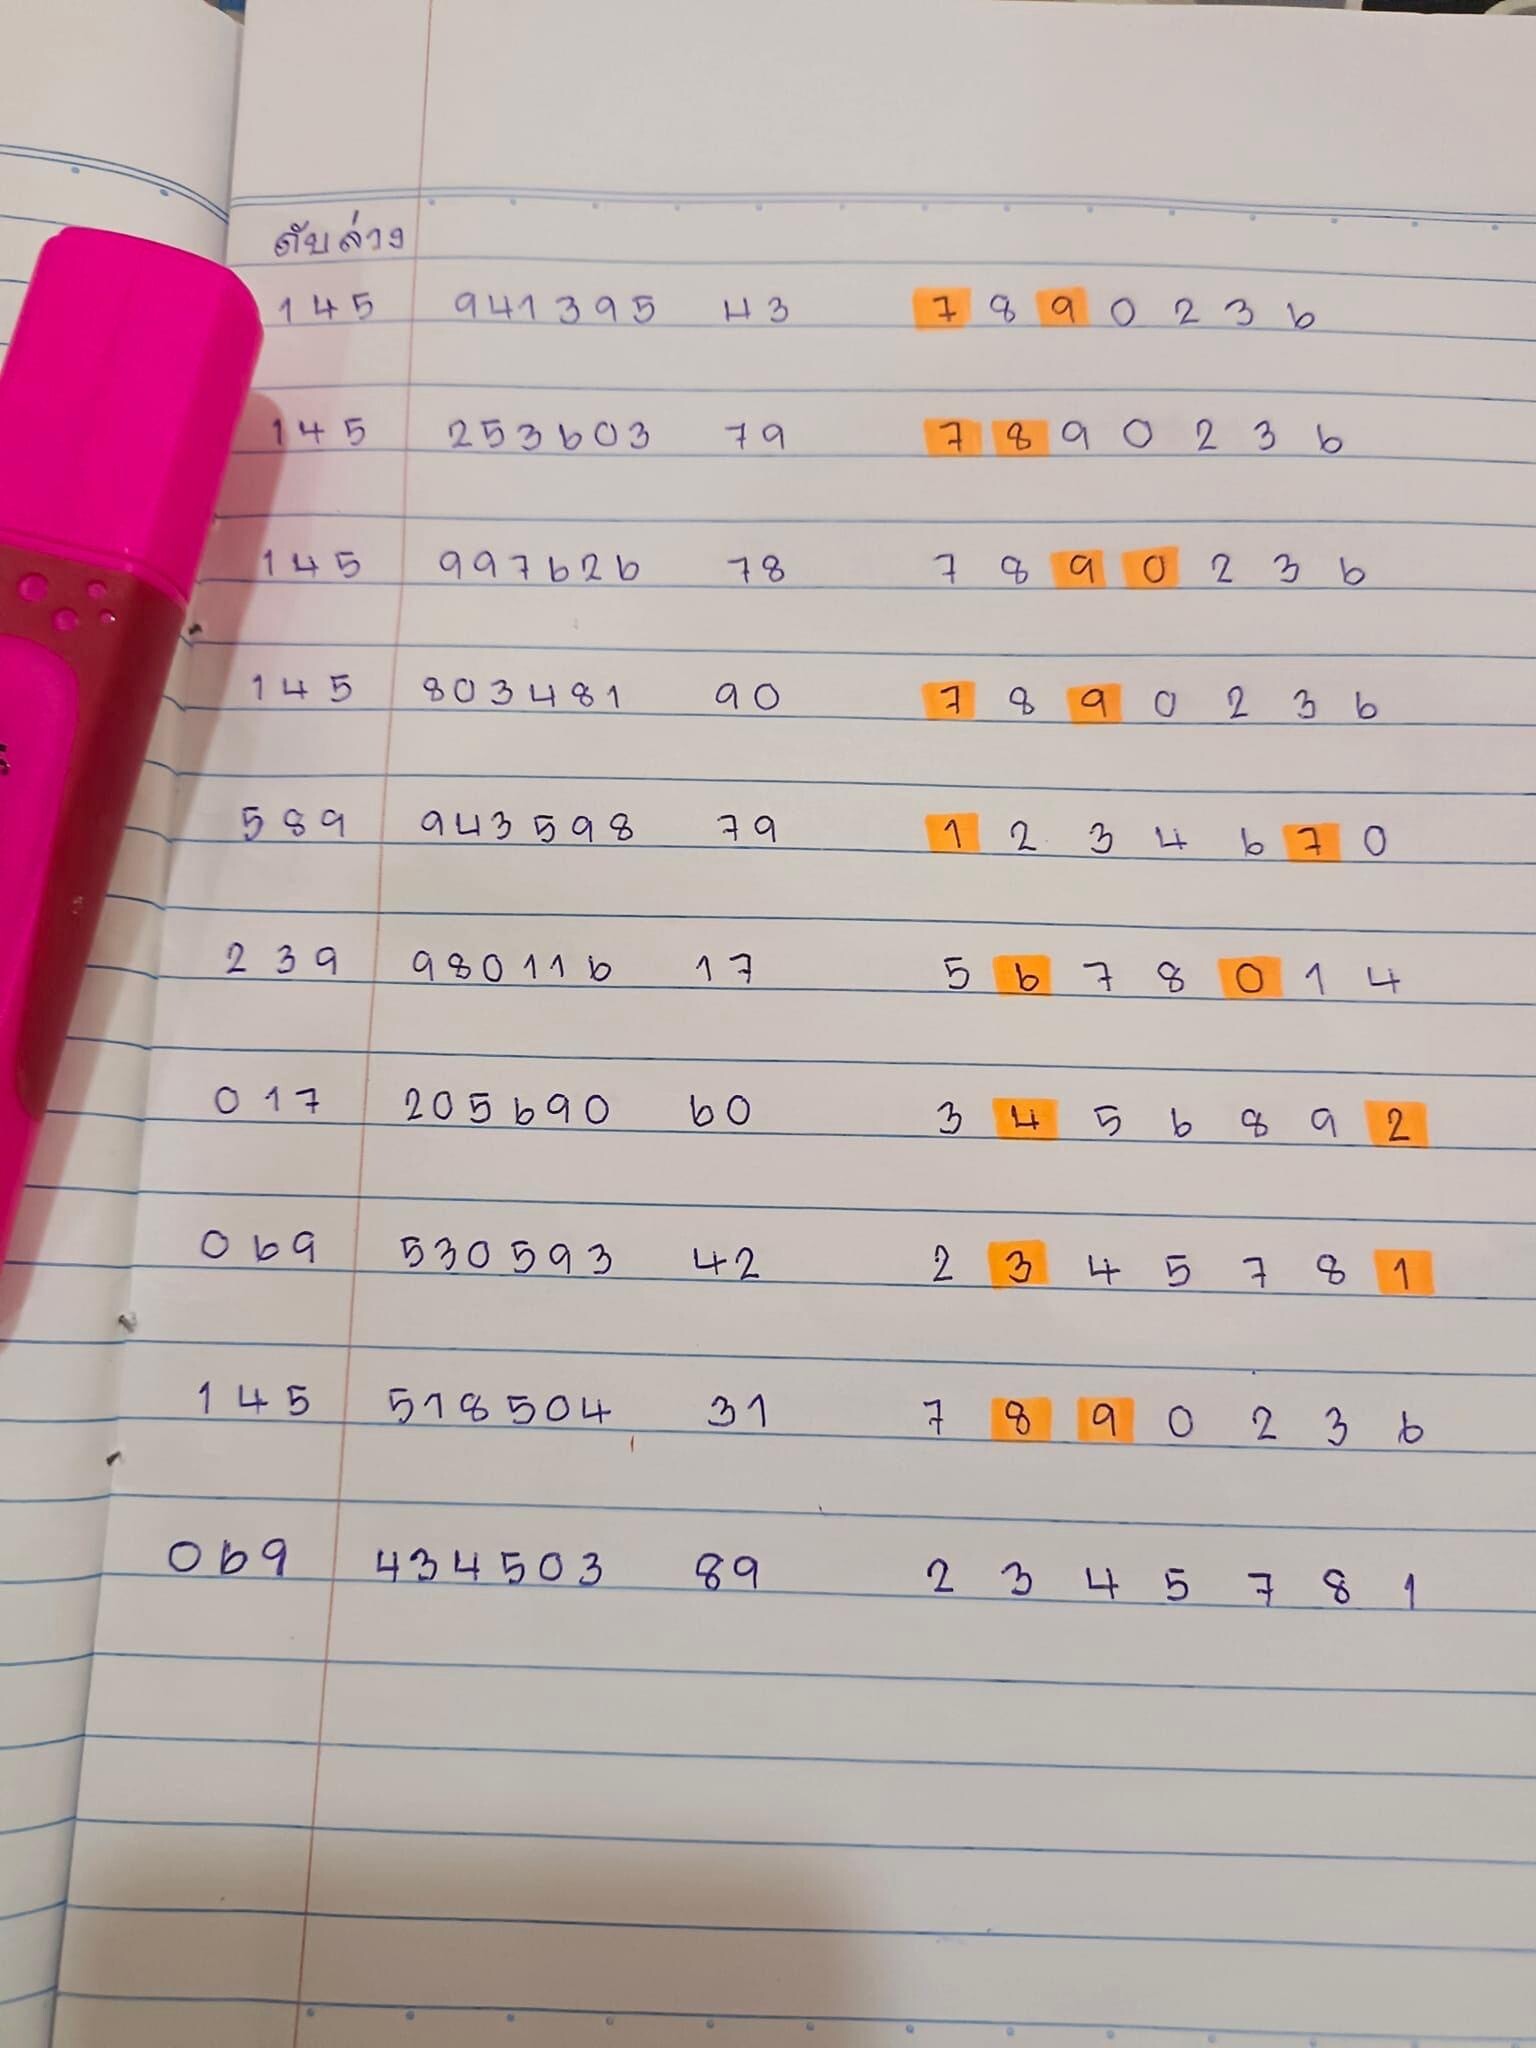 ดับล่าง
145 941395 43 7 8 9 0 2 3 6
145 253603 79 7 8 9 0 2 3 6
145 997626 78 7 8 9 0 2 3 6
145 803481 90 7 8 9 0 2 3 6
589 943598 79 1 2 3 4 6 7 0
239 980116 17 5 6 7 8 0 1 4
017 205690 60 3 4 5 6 8 9 2
069 530593 42 2 3 4 5 7 8 1
145 518504 31 7 8 9 0 2 3 6
069 434503 89 2 3 4 5 7 8 1